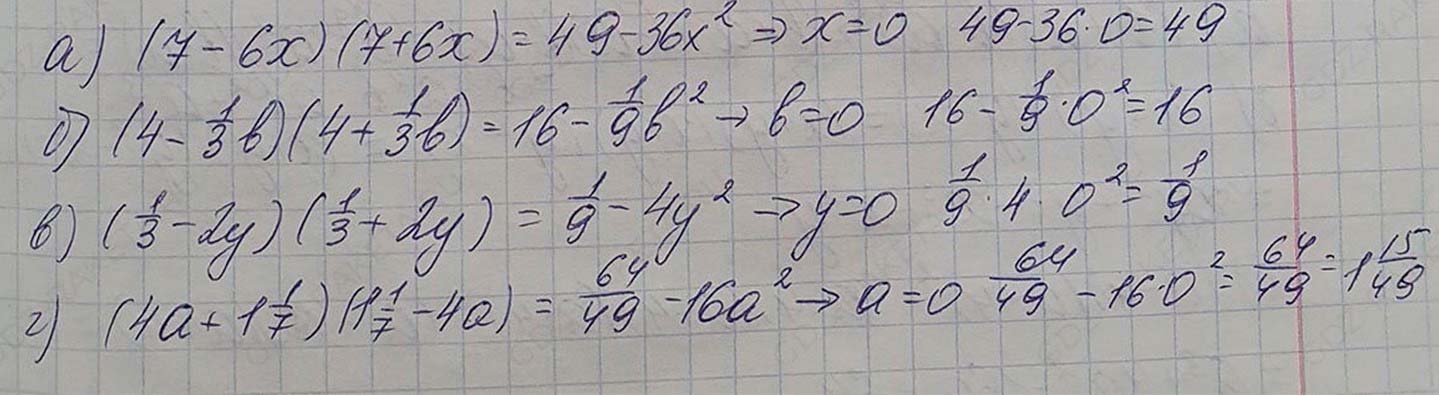 а) (7 - 6x)(7 + 6x) = 49 - 36x² ⇒ x = 0 49 - 36·0 = 49
б) (4 - 1/3 b)(4 + 1/3 b) = 16 - 1/9 b² → b = 0 16 - 1/9 · 0² = 16
в) (1/3 - 2y)(1/3 + 2y) = 1/9 - 4y² → y = 0 1/9 · 4 · 0² = 1/9
г) (4a + 1 1/7)(1 1/7 - 4a) = 64/49 - 16a² → a = 0 64/49 - 16·0² = 64/49 = 1 15/49